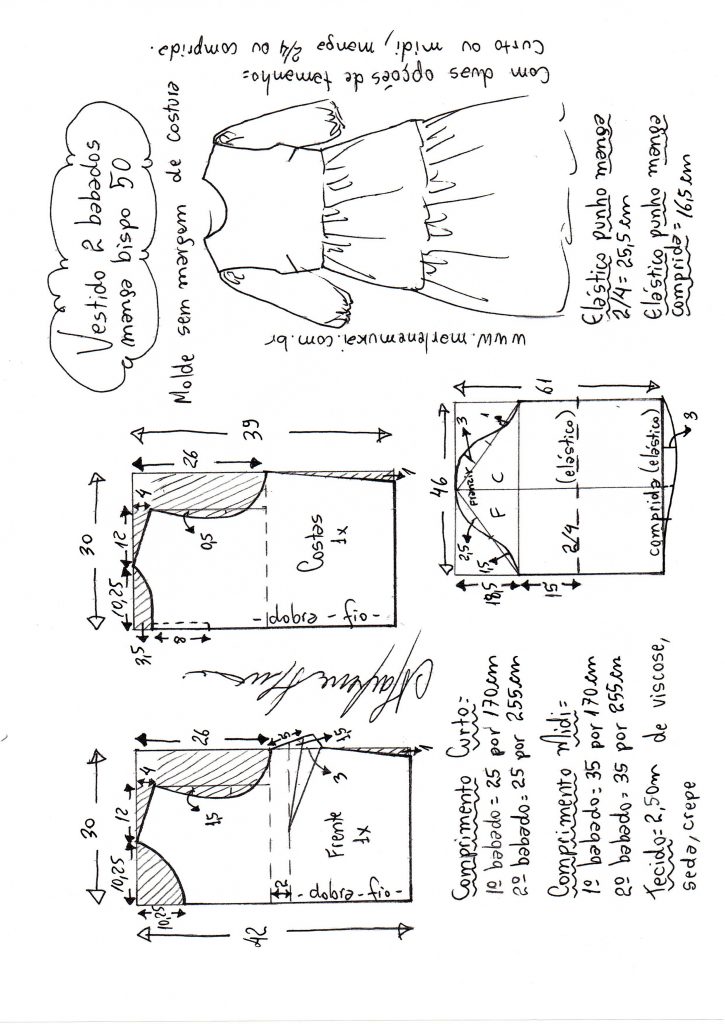 Vestido 2 babados
manga bispo 50
Molde sem margem de costura
Com duas opções de tamanho=
Curto ou midi, manga 2/4 ou comprida.
www.marlenemukai.com.br
Elástico punho manga
2/4 = 25,5 cm
Elástico punho manga
comprida = 16,5 cm
30
10,25
12
4
26
39
3,5
8
0,5
Costas
1x
- fio - dobra -
1
46
61
18,5
15
2,5
1,5
franzir
3
1
F
C
2/4
(elástico)
comprida (elástico)
3
30
10,25
12
4
26
42
10,25
1,5
5
1,5
3
2
Frente
1x
- fio - dobra -
1
Comprimento Curto=
1º babado = 25 por 170 cm
2º babado = 25 por 255 cm
Comprimento Midi=
1º babado = 35 por 170 cm
2º babado = 35 por 255 cm
Tecido = 2,50m de viscose,
seda, crepe